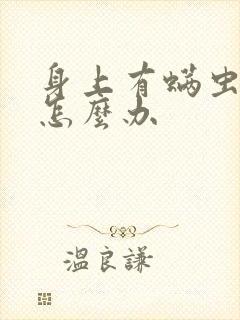 身上有螨虫
怎麼办
溫良謙